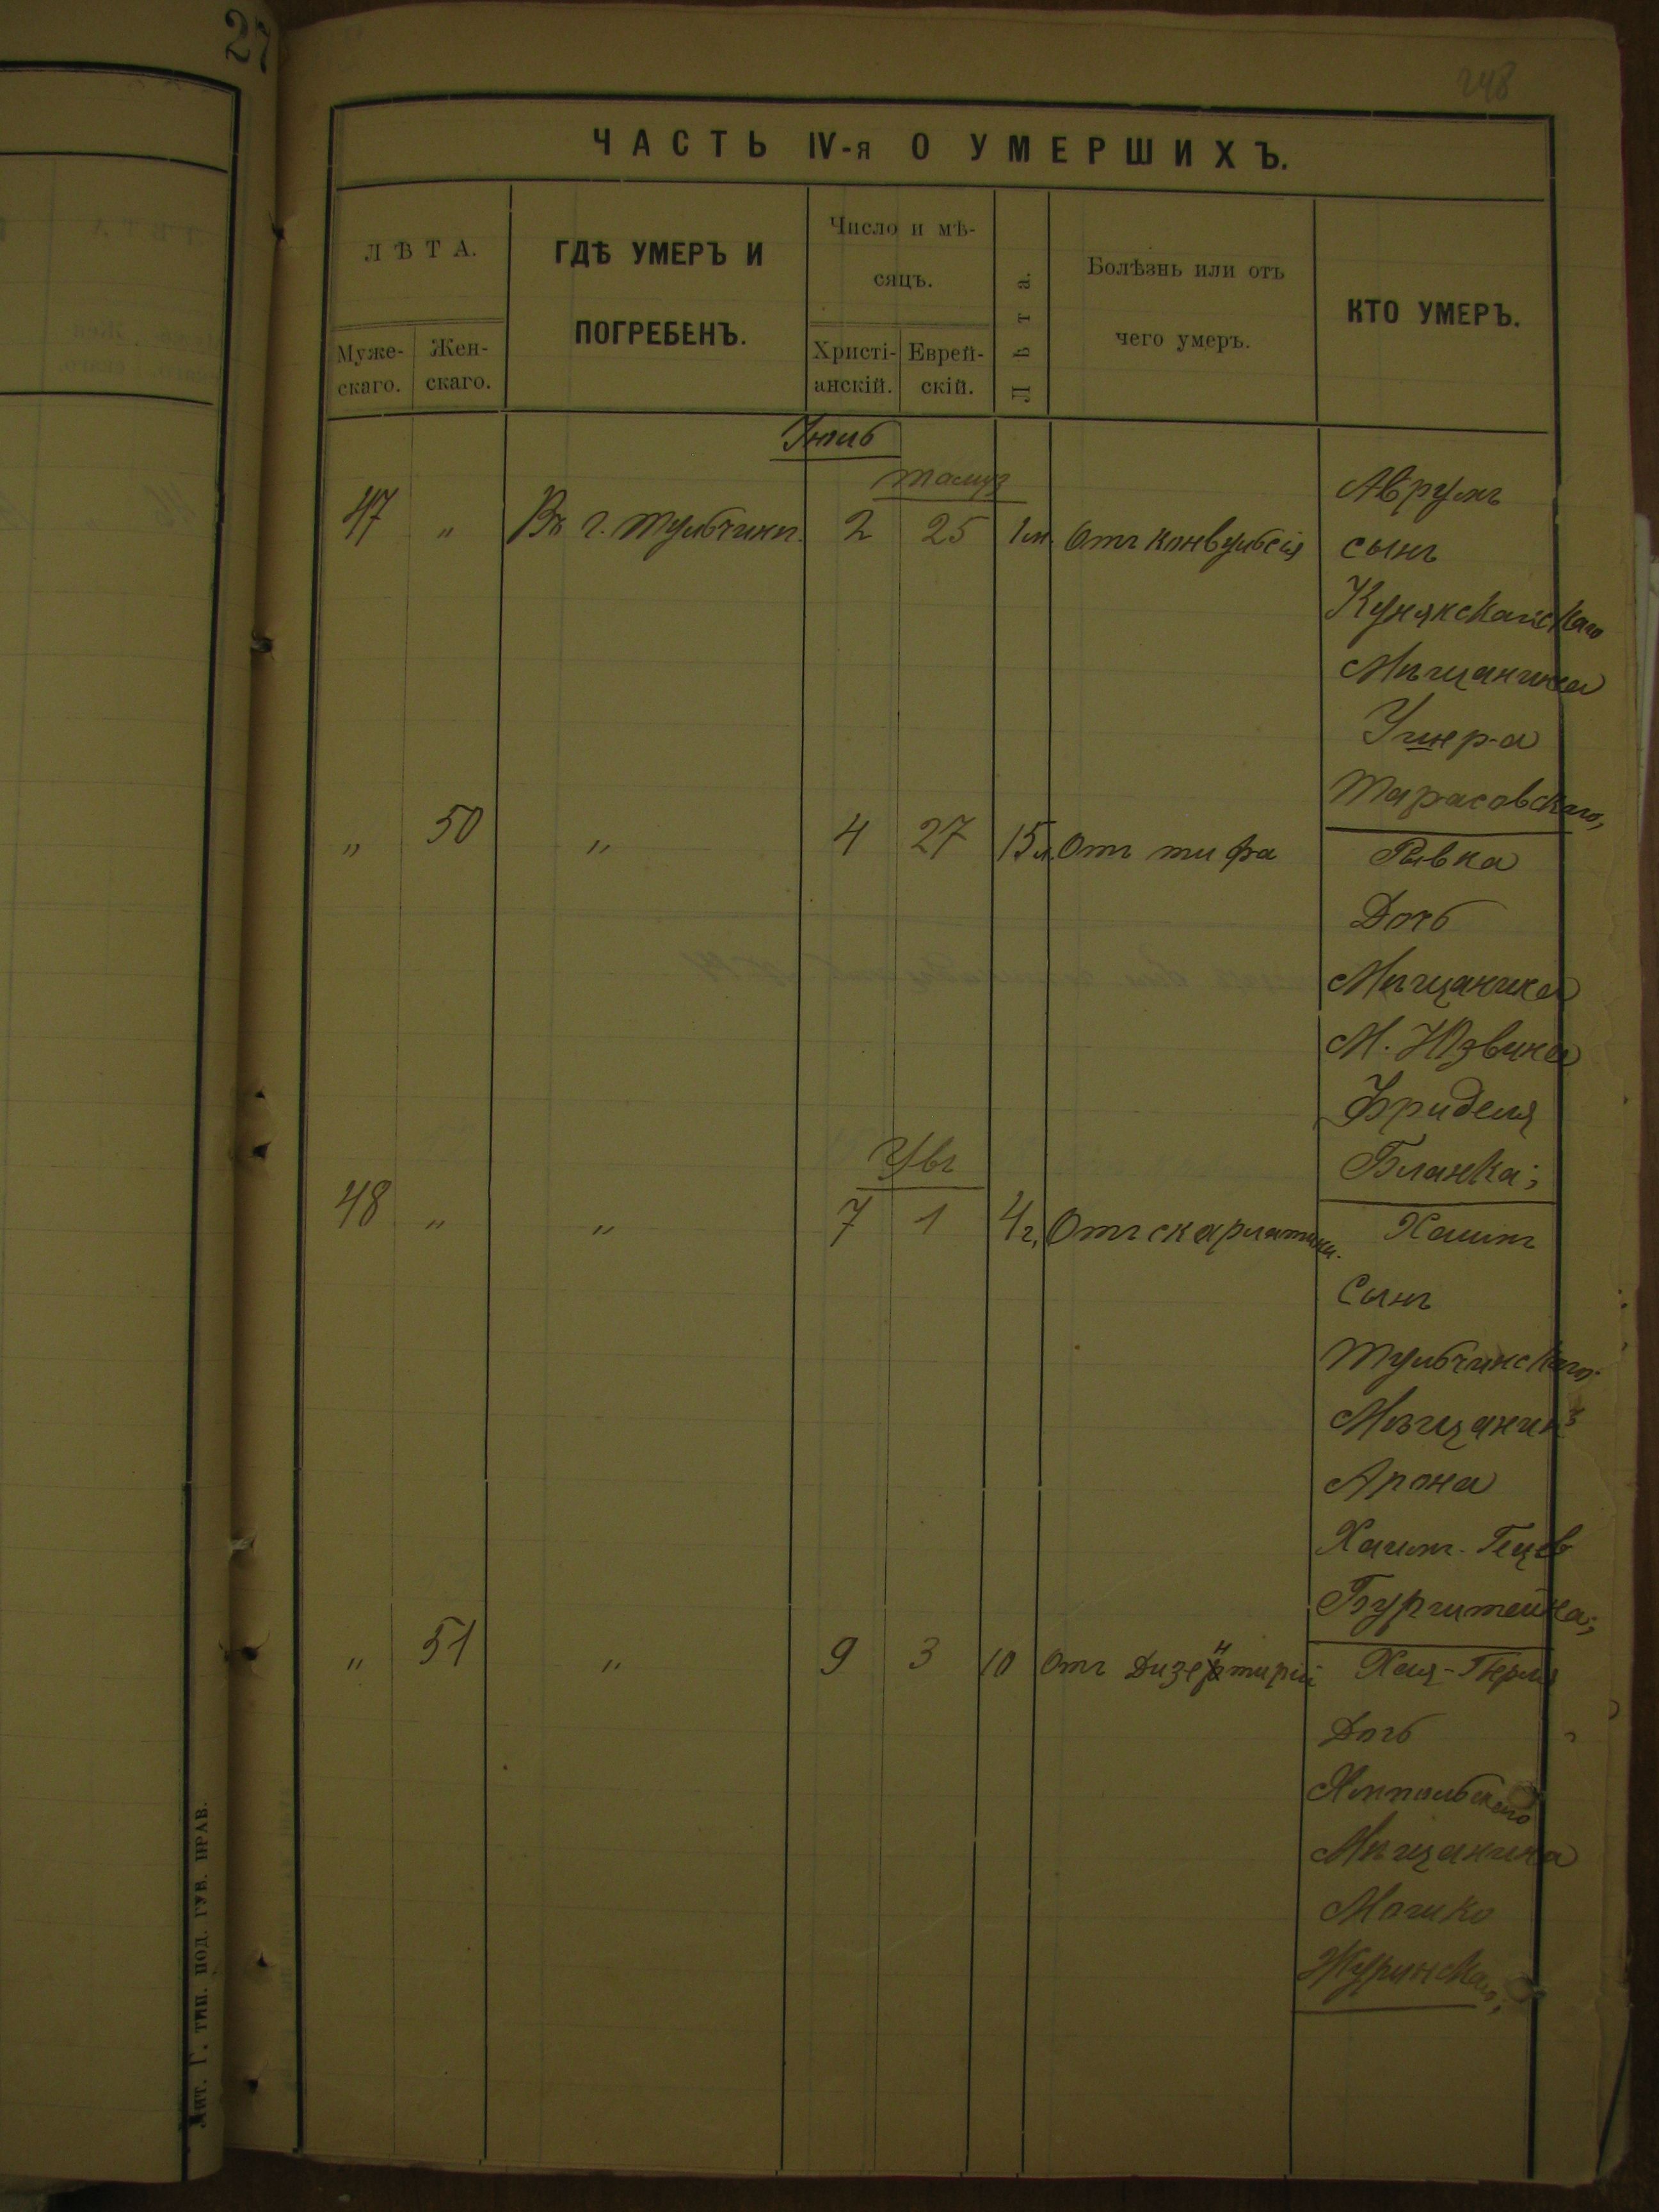 27
248
ЧАСТЬ IV-я О УМЕРШИХЪ.
ЛѢТА.
Муже-
скаго.
Жен-
скаго.
ГДѢ УМЕРЪ И
ПОГРЕБЕНЪ.
Число и мѣ-
сяцъ.
Христі-
анскій.
Еврей-
скій.
Лѣта.
Болѣзнь или отъ
чего умеръ.
КТО УМЕРЪ.
Іюль
тамуз
47 " Въ г. Тульчинѣ. 2 25 1 м. Отъ конвульсія
Аврумъ
сынъ
Мѣщанина
Тарасовскаго,
" 50 " 4 27 15 л. Отъ тифа
Рывка
Дочь
Мѣщанина
М. Юзвина
Фриделя
Бланка;
Увъ
48 " " 7 1 4 г. Отъ скарлатины.
Хаимъ
Сынъ
Тульчинскаго
Мѣщанина
Арона
Хаимъ-Гецев
Бурштейна;
" 51 " 9 3 10 Отъ Дизентирій
Хая-Перля
Дочь
Ямпольскаго
Мѣщанина
Мошко
Журинскаго;
Лит. Г. ТИП. ПОД. ГУБ. ПРАВ.